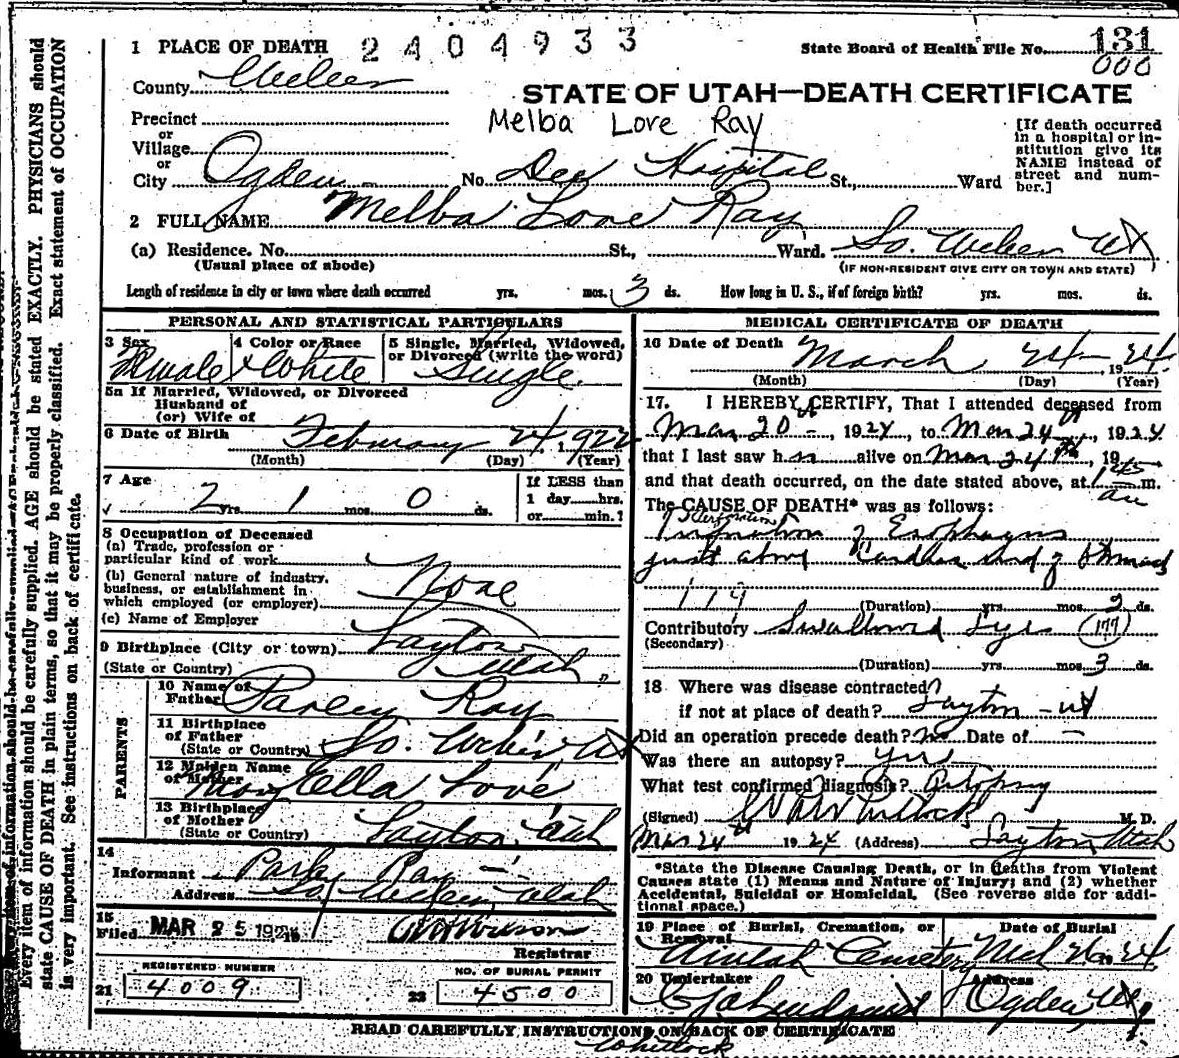 1 PLACE OF DEATH 2404933 State Board of Health File No. 131
000
County Weber
STATE OF UTAH—DEATH CERTIFICATE
Precinct
Melba Love Ray
or
Village
or
City Ogden No. Dee Hospital St., Ward
[If death occurred
in a hospital or in-
stitution give its
NAME instead of
street and num-
ber.]
2 FULL NAME Melba Love Ray
(a) Residence. No. St., Ward. So. Weber Ut
(Usual place of abode) (IF NON-RESIDENT GIVE CITY OR TOWN AND STATE)
Length of residence in city or town where death occurred yrs. mos. 3 ds. How long in U. S., if of foreign birth? yrs. mos. ds.
PERSONAL AND STATISTICAL PARTICULARS
3 Sex 4 Color or Race 5 Single, Married, Widowed,
or Divorced (write the word)
Female White Single
5a If Married, Widowed, or Divorced
Husband of
(or) Wife of
6 Date of Birth February 24, 1922
(Month) (Day) (Year)
7 Age If LESS than
2 yrs. 1 mos. 0 ds. 1 day hrs.
or min.?
8 Occupation of Deceased
(a) Trade, profession or
particular kind of work
(b) General nature of industry,
business, or establishment in
which employed (or employer) None
(c) Name of Employer
9 Birthplace (City or town) Layton
(State or Country) Utah
PARENTS
10 Name of
Father Parley Ray
11 Birthplace
of Father
(State or Country) So. Weber, Ut
12 Maiden Name
of Mother Mary Ella Love
13 Birthplace
of Mother
(State or Country) Layton, Utah
14
Informant Parley Ray
Address So. Weber, Utah
15
Filed MAR 25 192
Registrar
REGISTERED NUMBER NO. OF BURIAL PERMIT
21 4009 22 4500
MEDICAL CERTIFICATE OF DEATH
16 Date of Death March 24, 1924
(Month) (Day) (Year)
17. I HEREBY CERTIFY, That I attended deceased from
Mar 20, 1924, to Mar 24th, 1924
that I last saw her alive on Mar 24th, 19
and that death occurred, on the date stated above, at 1:45 m.
am
The CAUSE OF DEATH* was as follows:
Perforation
of Esophagus
just above Cardiac end of Stomach
119
(Duration) yrs. mos. 2 ds.
Contributory Swallowed Lye (177)
(Secondary)
(Duration) yrs. mos. 3 ds.
18 Where was disease contracted?
if not at place of death? Layton - Ut
Did an operation precede death? No Date of -
Was there an autopsy? Yes
What test confirmed diagnosis? Autopsy
(Signed) Whitlock M. D.
Mar 24th 1924 (Address) Layton Utah
*State the Disease Causing Death, or in Deaths from Violent
Causes state (1) Means and Nature of Injury; and (2) whether
Accidental, Suicidal or Homicidal. (See reverse side for addi-
tional space.)
19 Place of Burial, Cremation, or
Removal Date of Burial
Cemetery Mch 26, 24
20 Undertaker Address
Ogden Ut
READ CAREFULLY INSTRUCTIONS ON BACK OF CERTIFICATE
Whitlock
Every item of information should be carefully supplied. AGE should be stated EXACTLY. PHYSICIANS should
state CAUSE OF DEATH in plain terms, so that it may be properly classified. Exact statement of OCCUPATION
is very important. See instructions on back of certificate.